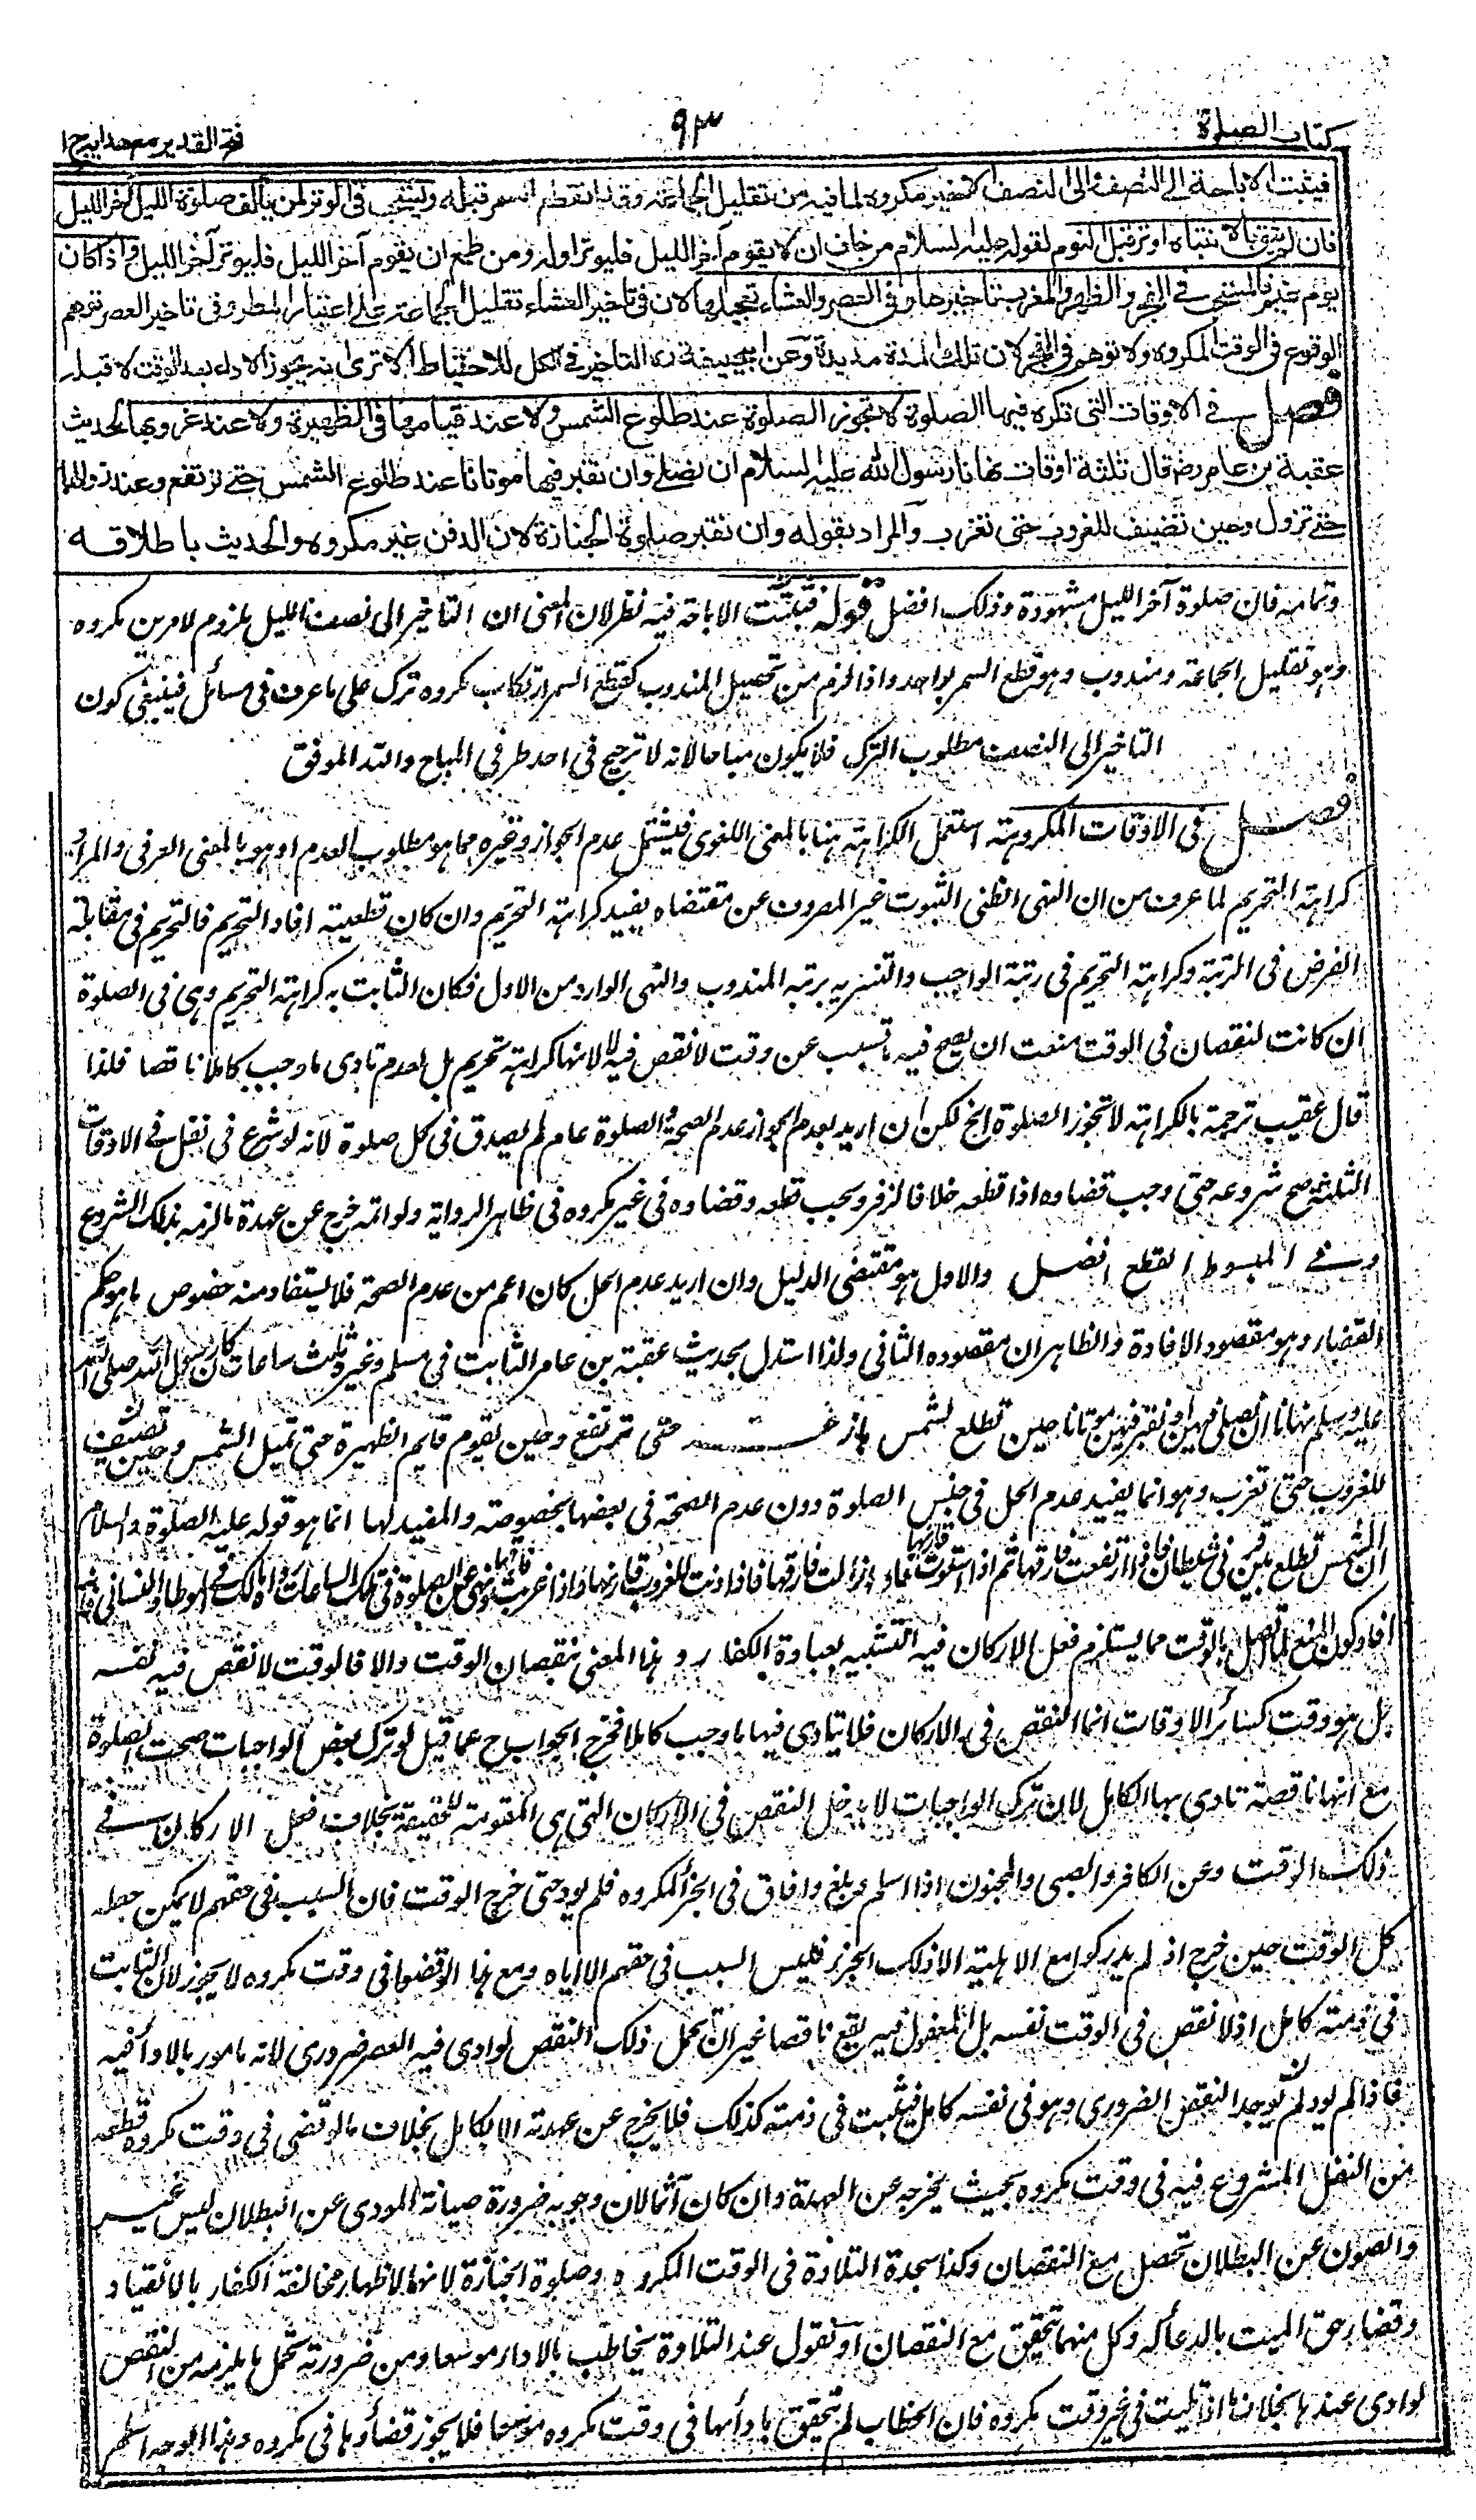 كتاب الصلوة
٩٣
فتح القدير مع هدايه ج ١
فيثبت الاباحة الى النصف والى النصف الاخير مكروه لما فيه من تقليل الجماعة وقد انقطع السمر قبله ويستحب فى الوتر لمن يالف صلوة الليل آخر الليل
فان لم يثق بالانتباه اوتر قبل النوم لقوله عليه السلام من خاف ان لا يقوم آخر الليل فليوتر اوله ومن طمع ان يقوم آخر الليل فليوتر آخر الليل واذا كان
يوم غيم فالمستحب فى الفجر والظهر والمغرب تاخيرها وفى العصر والعشاء تعجيلهما لان فى تاخير العشاء تقليل الجماعة على اعتبار المطر وفى تاخير العصر توهم
الوقوع فى الوقت المكروه ولا توهم فى الفجر لان تلك المدة مديدة وعن ابى حنيفة ره التاخير فى الكل للاحتياط الا ترى انه يجوز الاداء بعد الوقت لا قبله
فصل فى الاوقات التى تكره فيها الصلوة لا تجوز الصلوة عند طلوع الشمس ولا عند قيامها فى الظهيرة ولا عند غروبها لحديث
عقبة بن عامر رضه قال ثلثة اوقات نهانا رسول الله عليه السلام ان نصلى وان نقبر فيها موتانا عند طلوع الشمس حتى ترتفع وعند زوالها
حتى تزول وحين تضيف للغروب حتى تغرب والمراد بقوله وان نقبر صلوة الجنازة لان الدفن غير مكروه والحديث باطلاقه
وتمامه فان صلوة آخر الليل مشهودة وذلك افضل قوله فيثبت الاباحة فيه نظر لان المعنى ان التاخير الى نصف الليل يلزوم لامرين مكروه
وهو تقليل الجماعة ومندوب وهو قطع السمر بواحد واذا لزم من تحصيل المندوب كقطع السمر ارتكاب مكروه ترك على ما عرف فى مسائل فينبغى كون
التاخير الى النصف مطلوب الترك فلا يكون مباحا لانه لا ترجيح فى احد طرفى المباح والله الموفق
فصل فى الاوقات المكروهة استعمل الكراهة هنا بالمعنى اللغوى فيشتمل عدم الجواز وغيره مما هو مطلوب العدم او هو بالمعنى العرفى والمراد
كراهة التحريم لما عرف من ان النهى الظنى الثبوت غير المصروف عن مقتضاه يفيد كراهة التحريم وان كان قطعيته افاد التحريم فالتحريم فى مقابلة
الفرض فى الرتبة وكراهة التحريم فى رتبة الواجب والتنزيه برتبة المندوب والنهى الوارد من الاول فكان الثابت به كراهة التحريم وهى فى الصلوة
ان كانت لنقصان فى الوقت منعت ان يصح فيه ما تسبب عن وقت لا نقص فيه لا لانها كراهة تحريم بل لعدم تادى ما وجب كاملا ناقصا فلذا
قال عقيب ترجمة بالكراهة لا تجوز الصلوة الخ لكن ان اريد بعدم الجواز عدم الصحة والصلوة عام لم يصدق فى كل صلوة لانه لو شرع فى نفل فى الاوقات
الثلثة صح شروعه حتى وجب قضاوه اذا قطعه خلافا لزفر ويجب قطعه وقضاوه فى غير مكروه فى ظاهر الرواية ولو اتمه خرج عن عهدة ما لزمه بذلك الشروع
وفى المبسوط القطع افضل والاول هو مقتضى الدليل وان اريد عدم الحل كان اعم من عدم الصحة فلا يستفاد منه خصوص ما هو حكم
القضاء وهو مقصود الافادة والظاهر ان مقصوده الثانى ولذا استدل بحديث عقبة بن عامر الثابت فى مسلم وغيره ثلث ساعات كان رسول الله صلى الله
عليه وسلم نهانا ان نصلى فيهن او نقبر فيهن موتانا حين تطلع الشمس بازغة حتى ترتفع وحين يقوم قائم الظهيرة حتى تميل الشمس وحين تضيف
للغروب حتى تغرب وهو انما يفيد عدم الحل فى جنس الصلوة دون عدم الصحة فى بعضها بخصوصه والمفيد لها انما هو قوله عليه الصلوة والسلام
ان الشمس تطلع بين قرنى شيطان فاذا ارتفعت فارقها ثم اذا استوت قارنها فاذا زالت فارقها فاذا دنت للغروب قارنها واذا غربت فارقها ونهى عن الصلوة فى تلك الساعات رواه مالك فى الموطا والنسائى
افاد كون المنع لما اتصل بالوقت مما يستلزم فعل الاركان فيه التشبيه بعبادة الكفار وهذا المعنى بنقصان الوقت والا فالوقت لا نقص فيه نفسه
بل هو وقت كسائر الاوقات انما النقص فى الاركان فلا يتادى فيها ما وجب كاملا فخرج الجواب عما قيل لو ترك بعض الواجبات صحت الصلوة
مع انها ناقصة تادى بها الكامل لان ترك الواجبات لا يدخل النقص فى الاركان التى هى المقومة للحقيقة بخلاف فعل الاركان فى
ذلك الوقت وعن الكافر والصبى والمجنون اذا اسلم وبلغ وافاق فى الجزء المكروه فلم يود حتى خرج الوقت فان السبب فى حقهم لا يمكن جعله
كل الوقت حين خرج اذ لم يدركوا مع الاهلية الا ذلك الجزء فليس السبب فى حقهم الا اياه ومع هذا لو قضوا فى وقت مكروه لا يجوز لان الثابت
فى ذمته كامل اذ لا نقص فى الوقت نفسه بل المفعول فيه يقع ناقصا غير ان تحمل ذلك النقص لو ادى فيه العصر ضرورى لانه مامور بالاداء فيه
فاذا لم يود لم يوجد النقص الضرورى وهو فى نفسه كامل فيثبت فى ذمته كذلك فلا يخرج عن عهدته الا بكامل بخلاف ما لو قضى فى وقت مكروه ما قطعه
من النفل المشروع فيه فى وقت مكروه بحيث يخرجه عن العهدة وان كان آثما لان وجوبه ضرورة صيانة المودى عن البطلان ليس غير
والصون عن البطلان تحصل مع النقصان وكذا سجدة التلاوة فى الوقت المكروه وصلوة الجنازة لانها لاظهار مخالفة الكفار بالانقياد
وقضاء حق الميت بالدعاء له وكل منهما تحقق مع النقصان او نقول عند التلاوة يخاطب بالاداء موسعا ومن ضرورته تحمل ما يلزمه من النقص
لو ادى عندها بخلاف ما اذا تليت فى غير وقت مكروه فان الخطاب لم يتحقق بادائها فى وقت مكروه موسعا فلا يجوز قضاؤها فى مكروه وهذا الوجه اسلم